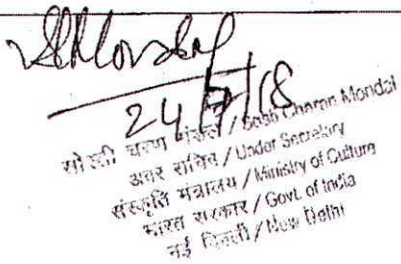 SCMondal
24/7/18
चरण मंडल / Charan Mondal
अवर सचिव / Under Secretary
संस्कृति मंत्रालय / Ministry of Culture
भारत सरकार / Govt. of India
नई दिल्ली / New Delhi